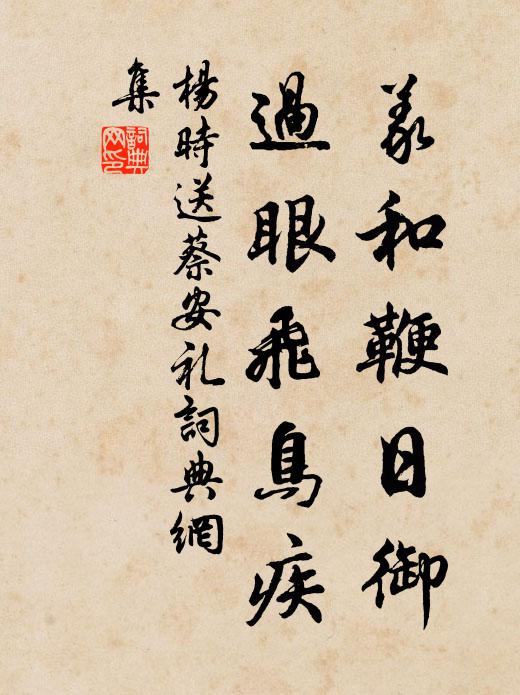 羲和鞭日御
過眼飛鳥疾
楊時送蔡安礼詞典網
集
詞典
网印